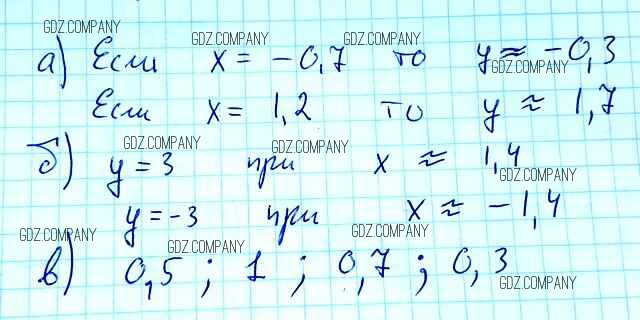 GDZ.COMPANY
GDZ.COMPANY GDZ.COMPANY
а) Если x = -0,7 то y ≈ -0,3
GDZ.COMPANY
Если x = 1,2 то y ≈ 1,7
GDZ.COMPANY GDZ.COMPANY
б) y = 3 при x ≈ 1,4
GDZ.COMPANY
y = -3 при x ≈ -1,4
GDZ.COMPANY GDZ.COMPANY GDZ.COMPANY
в) 0,5 ; 1 ; 0,7 ; 0,3
GDZ.COMPANY